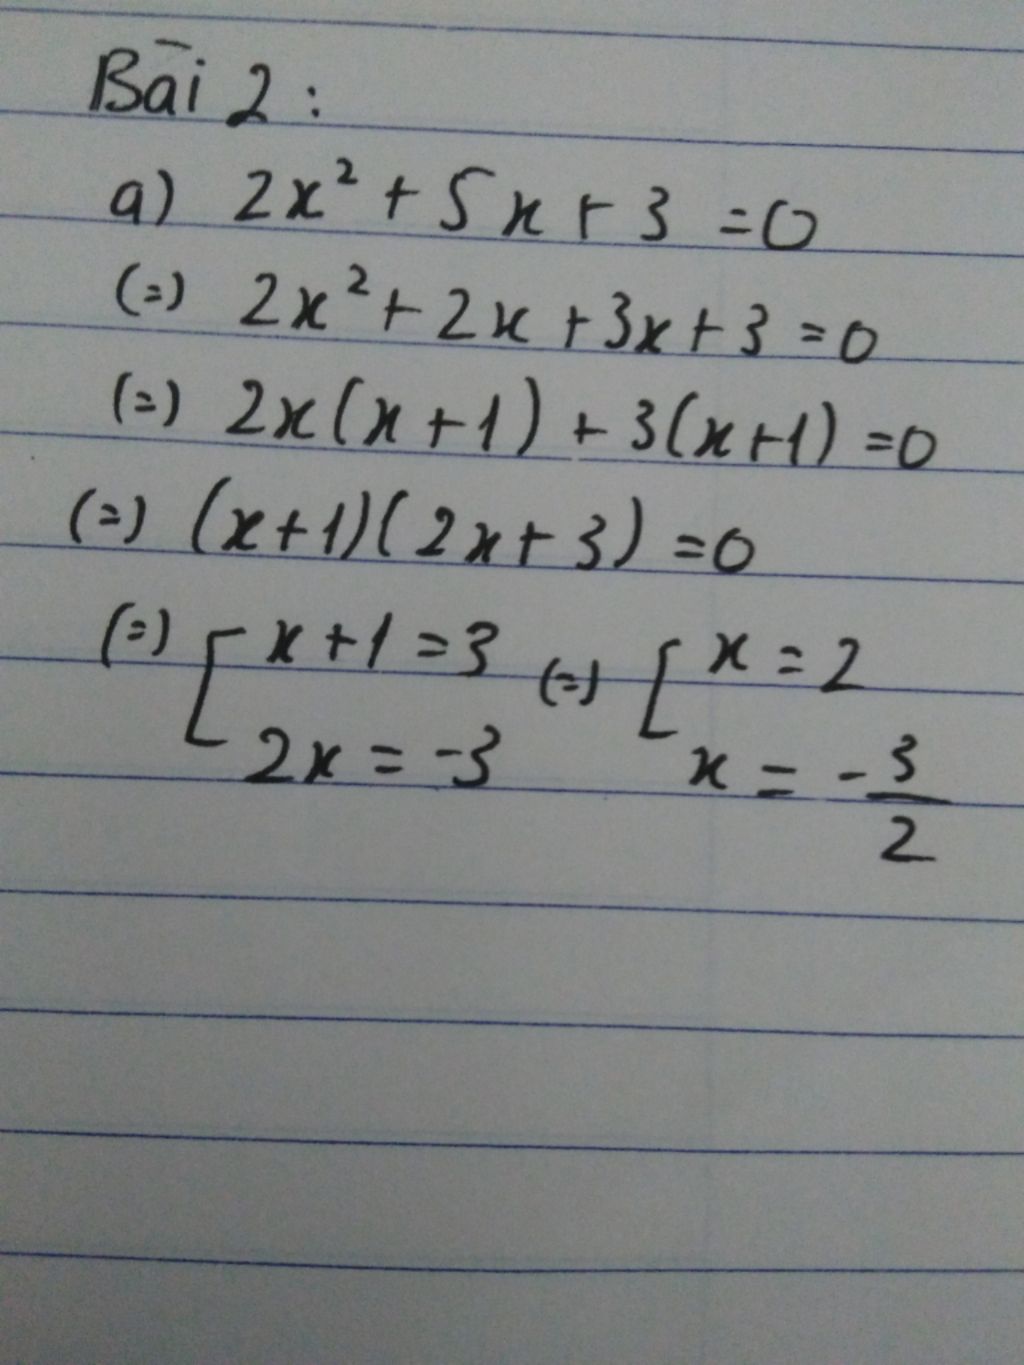 Bài 2 :
a) 2x² + 5x + 3 = 0
(=) 2x² + 2x + 3x + 3 = 0
(=) 2x(x+1) + 3(x+1) = 0
(=) (x+1)(2x+3) = 0
(=) [ x+1 = 3 (=) [ x = 2
2x = -3 x = -3/2